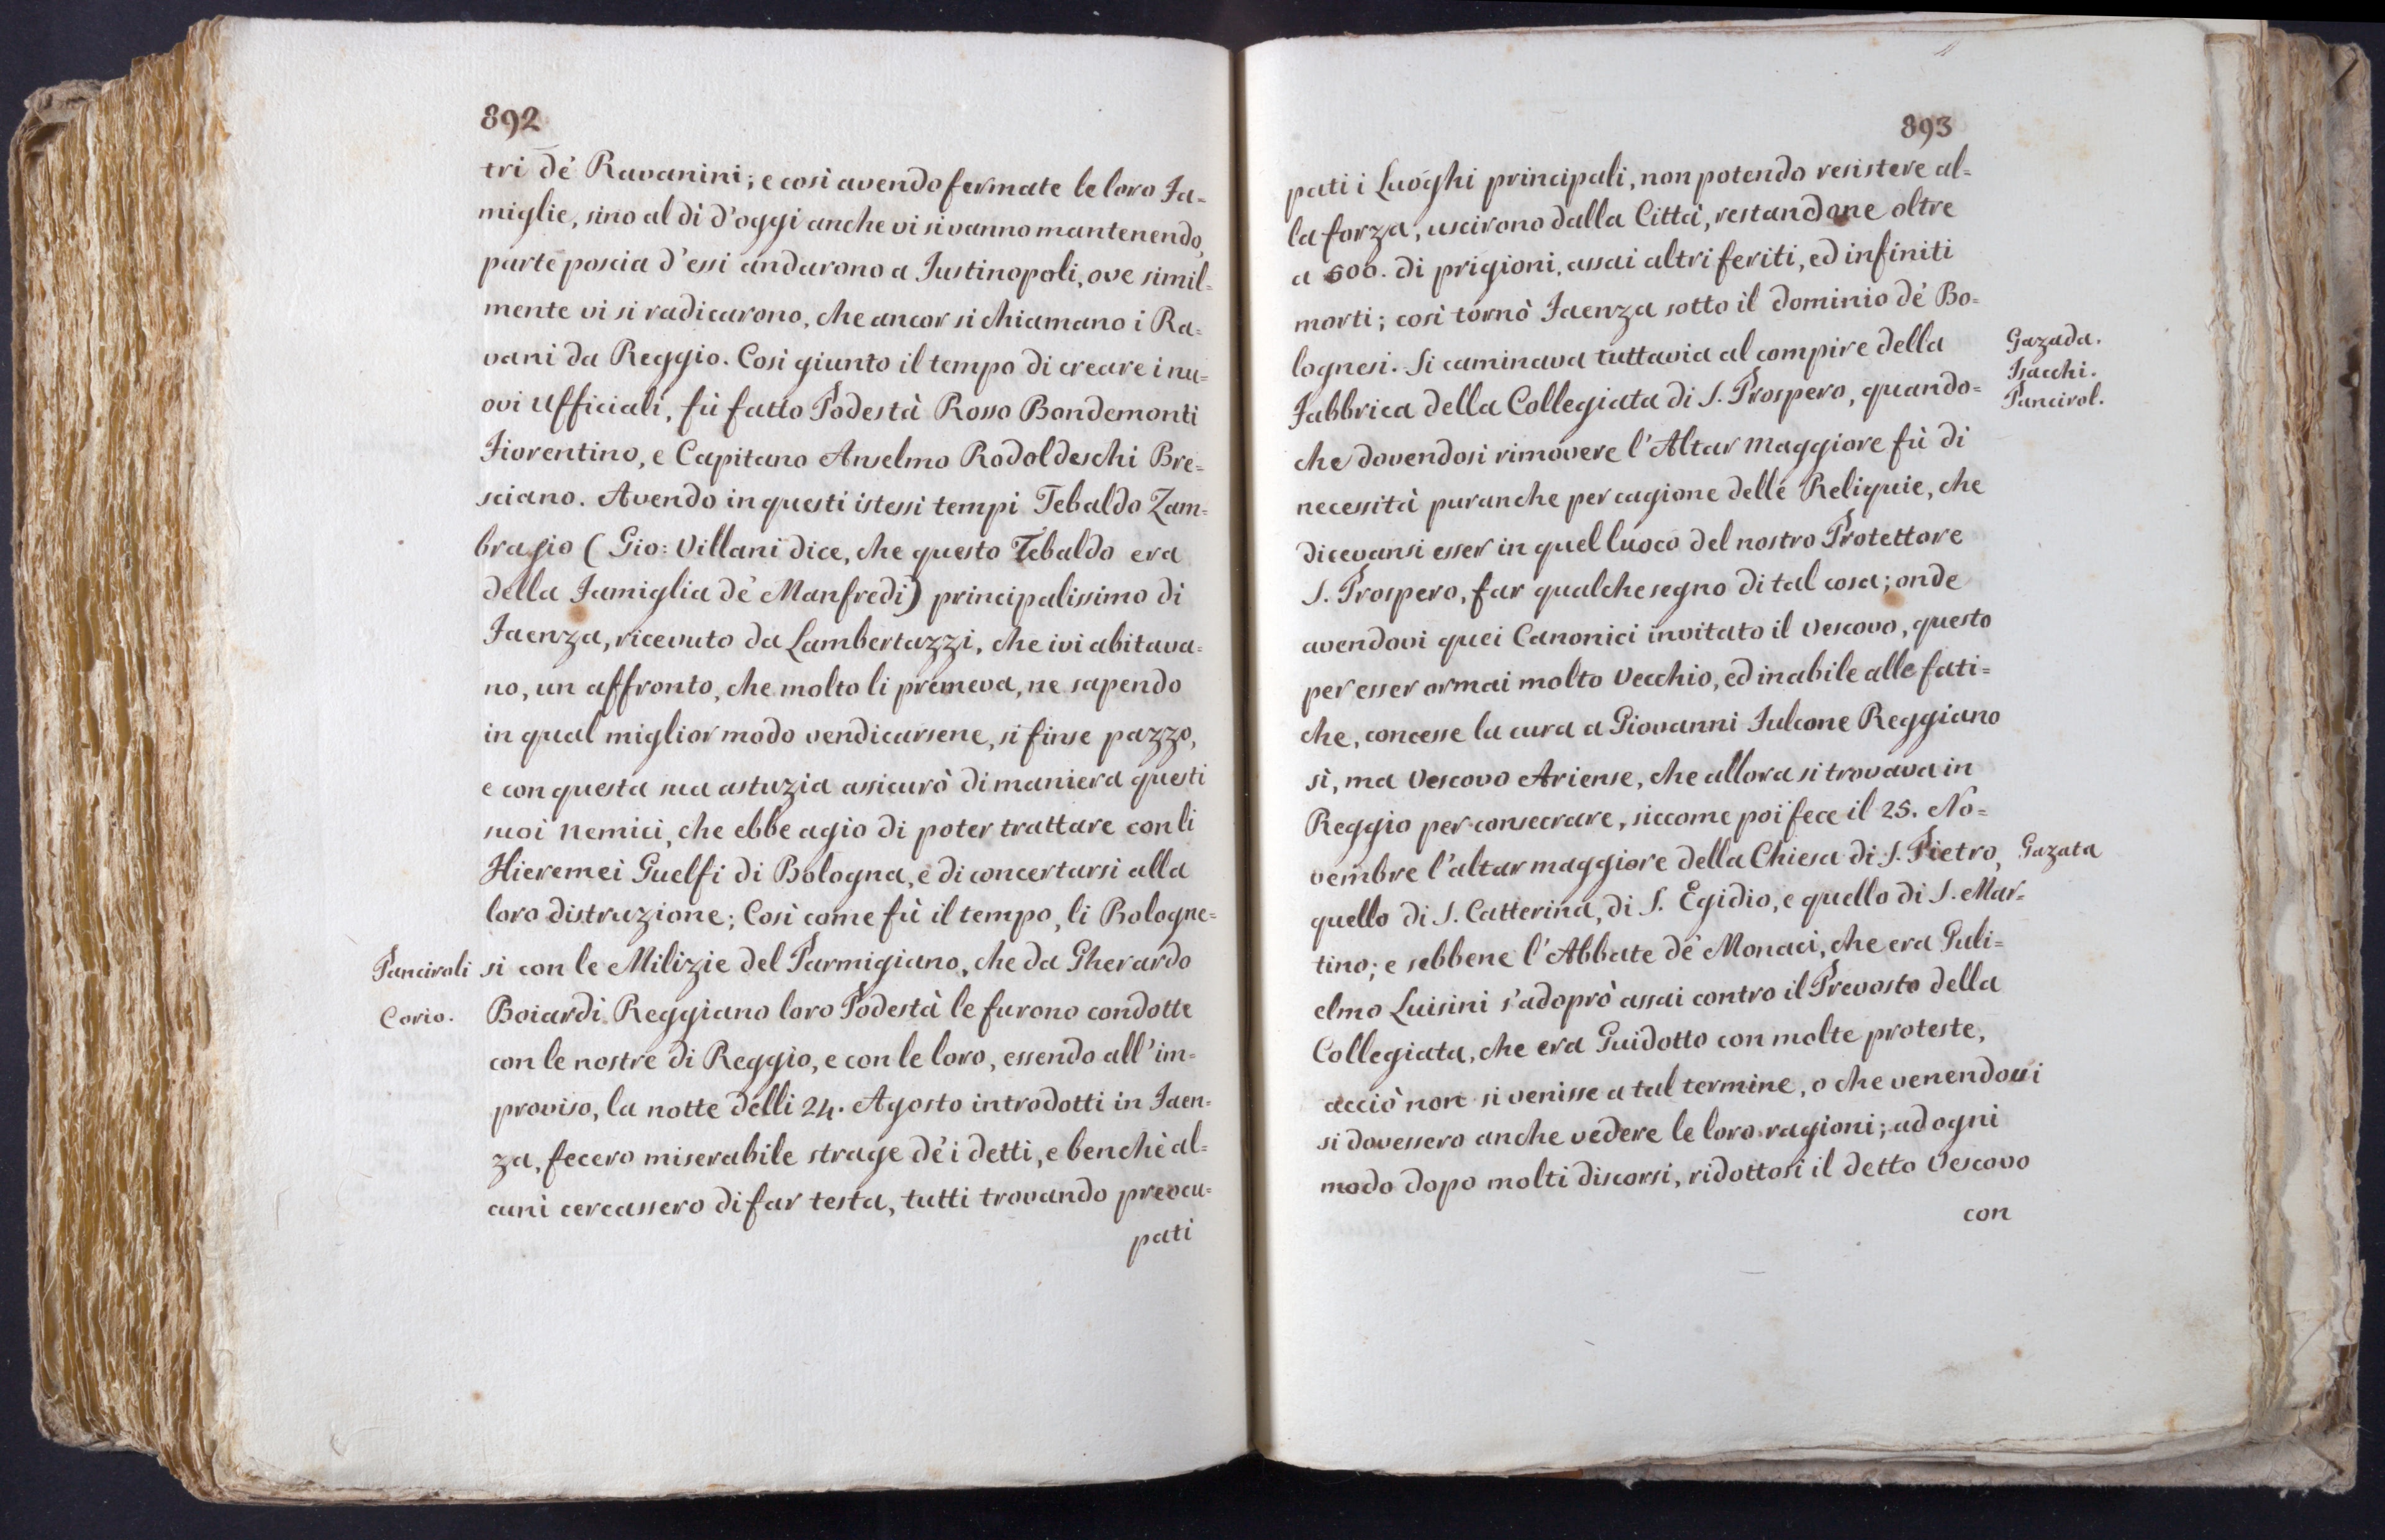 892
tri de' Ravanini; e così avendo fermate le loro Fa=
miglie, sino al dì d'oggi anche vi si vanno mantenendo,
parte poscia d'essi andarono a Justinopoli, ove simil=
mente vi si radicarono, che ancor si chiamano i Ra=
vani da Reggio. Così giunto il tempo di creare i nu=
ovi Ufficiali, fù fatto Podestà Rosso Bondemonti
Fiorentino, e Capitano Anselmo Rodoldeschi Bre=
sciano. Avendo in questi istessi tempi Tebaldo Zam=
brasio (Gio: Villani dice, che questo Tebaldo era
della Famiglia de' Manfredi) principalissimo di
Faenza, ricevuto da Lambertazzi, che ivi abitava=
no, un affronto, che molto li premeva, ne sapendo
in qual miglior modo vendicarsene, si finse pazzo,
e con questa sua astuzia assicurò di maniera questi
suoi Nemici, che ebbe agio di poter trattare con li
Hieremei Guelfi di Bologna, e di concertarsi alla
loro distruzione; Così come fù il tempo, li Bologne=
Panciroli si con le Milizie del Parmigiano, che da Gherardo
Corio. Boiardi Reggiano loro Podestà le furono condotte
con le nostre di Reggio, e con le loro, essendo all'im=
proviso, la notte delli 24. Agosto introdotti in Faen=
za, fecero miserabile strage de' i detti, e benchè al=
cuni cercassero di far testa, tutti trovando preocu=
pati
893
pati i Luoghi principali, non potendo resistere al=
la forza, uscirono dalla Città, restandone oltre
a 600. di prigioni, assai altri feriti, ed infiniti
morti; così tornò Faenza sotto il dominio de' Bo=
lognesi. Si caminava tuttavia al compire della Gazada.
Isacchi.
Fabbrica della Collegiata di S. Prospero, quando= Pancirol.
che dovendosi rimovere l'Altar Maggiore fù di
necessità puranche per cagione delle Reliquie, che
dicevansi esser in quel luoco del nostro Protettore
S. Prospero, far qualche segno di tal cosa; onde
avendovi quei Canonici invitato il Vescovo, questo
per esser ormai molto Vecchio, ed inabile alle fati=
che, concesse la cura a Giovanni Fulcone Reggiano
sì, ma Vescovo Ariense, che allora si trovava in
Reggio per consecrare, siccome poi fece il 25. No=
vembre l'altar maggiore della Chiesa di S. Pietro, Gazata
quello di S. Catterina, di S. Egidio, e quello di S. Mar=
tino; e sebbene l'Abbate de' Monaci, che era Guli=
elmo Luisini s'adoprò assai contro il Prevosto della
Collegiata, che era Guidotto con molte proteste,
acciò non si venisse a tal termine, o che venendovi
si dovessero anche vedere le loro ragioni; ad ogni
modo dopo molti discorsi, ridottosi il detto Vescovo
con